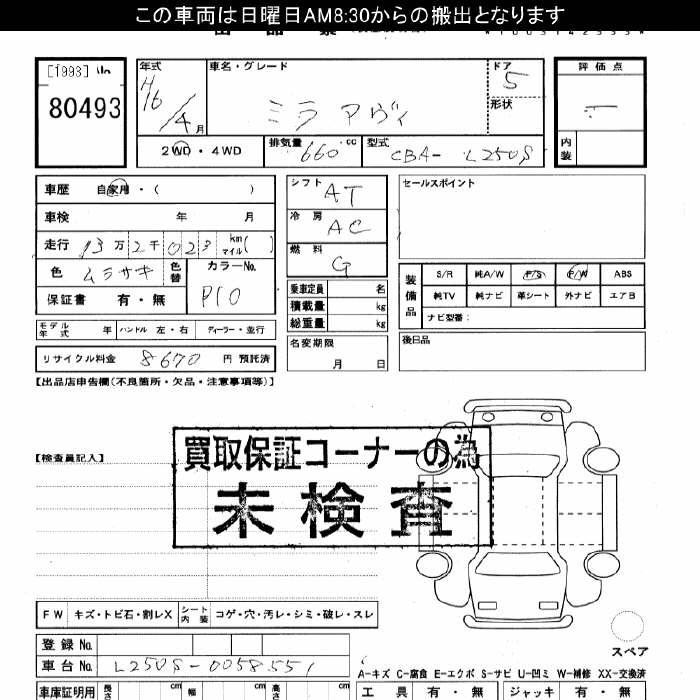 この車両は日曜日AM8:30からの搬出となります
[1993]
80493
年式 車名・グレード ドア 評価点
H16/4月 ミラ アヴィ 5
形状
2WD・4WD 排気量 660 cc 型式 CBA- L250S 内装
車歴 自家用・( ) シフト AT セールスポイント
車検 年 月 冷房 AC
走行 13万2千023 km マイル( ) 燃料 G
色 ムラサキ 色替 カラーNo. P10
保証書 有・無
乗車定員 名
積載量 kg
総重量 kg
装備品 S/R 純A/W P/S P/W ABS
純TV 純ナビ 革シート 外ナビ エアB
ナビ型番:
モデル年式 年 ハンドル 左・右 ディーラー・並行
名変期限 月 日
後日品
リサイクル料金 8670 円 預託済
【出品店申告欄(不良箇所・欠品・注意事項等)】
【検査員記入】
買取保証コーナーの為
未検査
FW キズ・トビ石・割レX シート内装 コゲ・穴・汚レ・シミ・破レ・スレ
スペア
登録No.
車台No. L250S-0058551
A-キズ C-腐食 E-エクボ S-サビ U-凹ミ W-補修 XX-交換済
車庫証明用 長さ cm 幅 cm 高さ cm 工具 有・無 ジャッキ 有・無